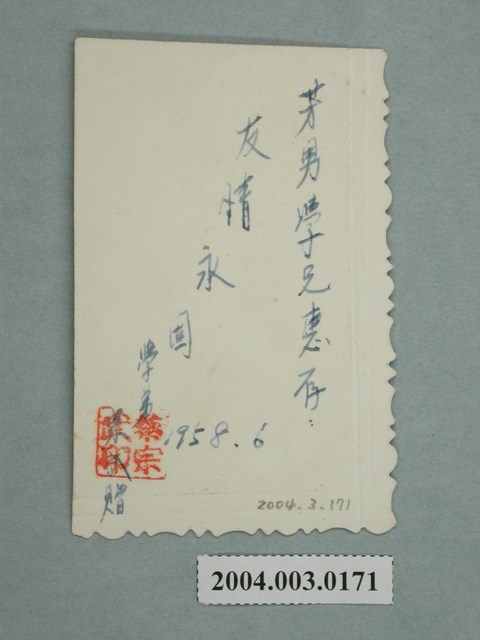 芳男學兄惠存：
友情永固
學弟
贈
1958.6
2004.3.171
2004.003.0171